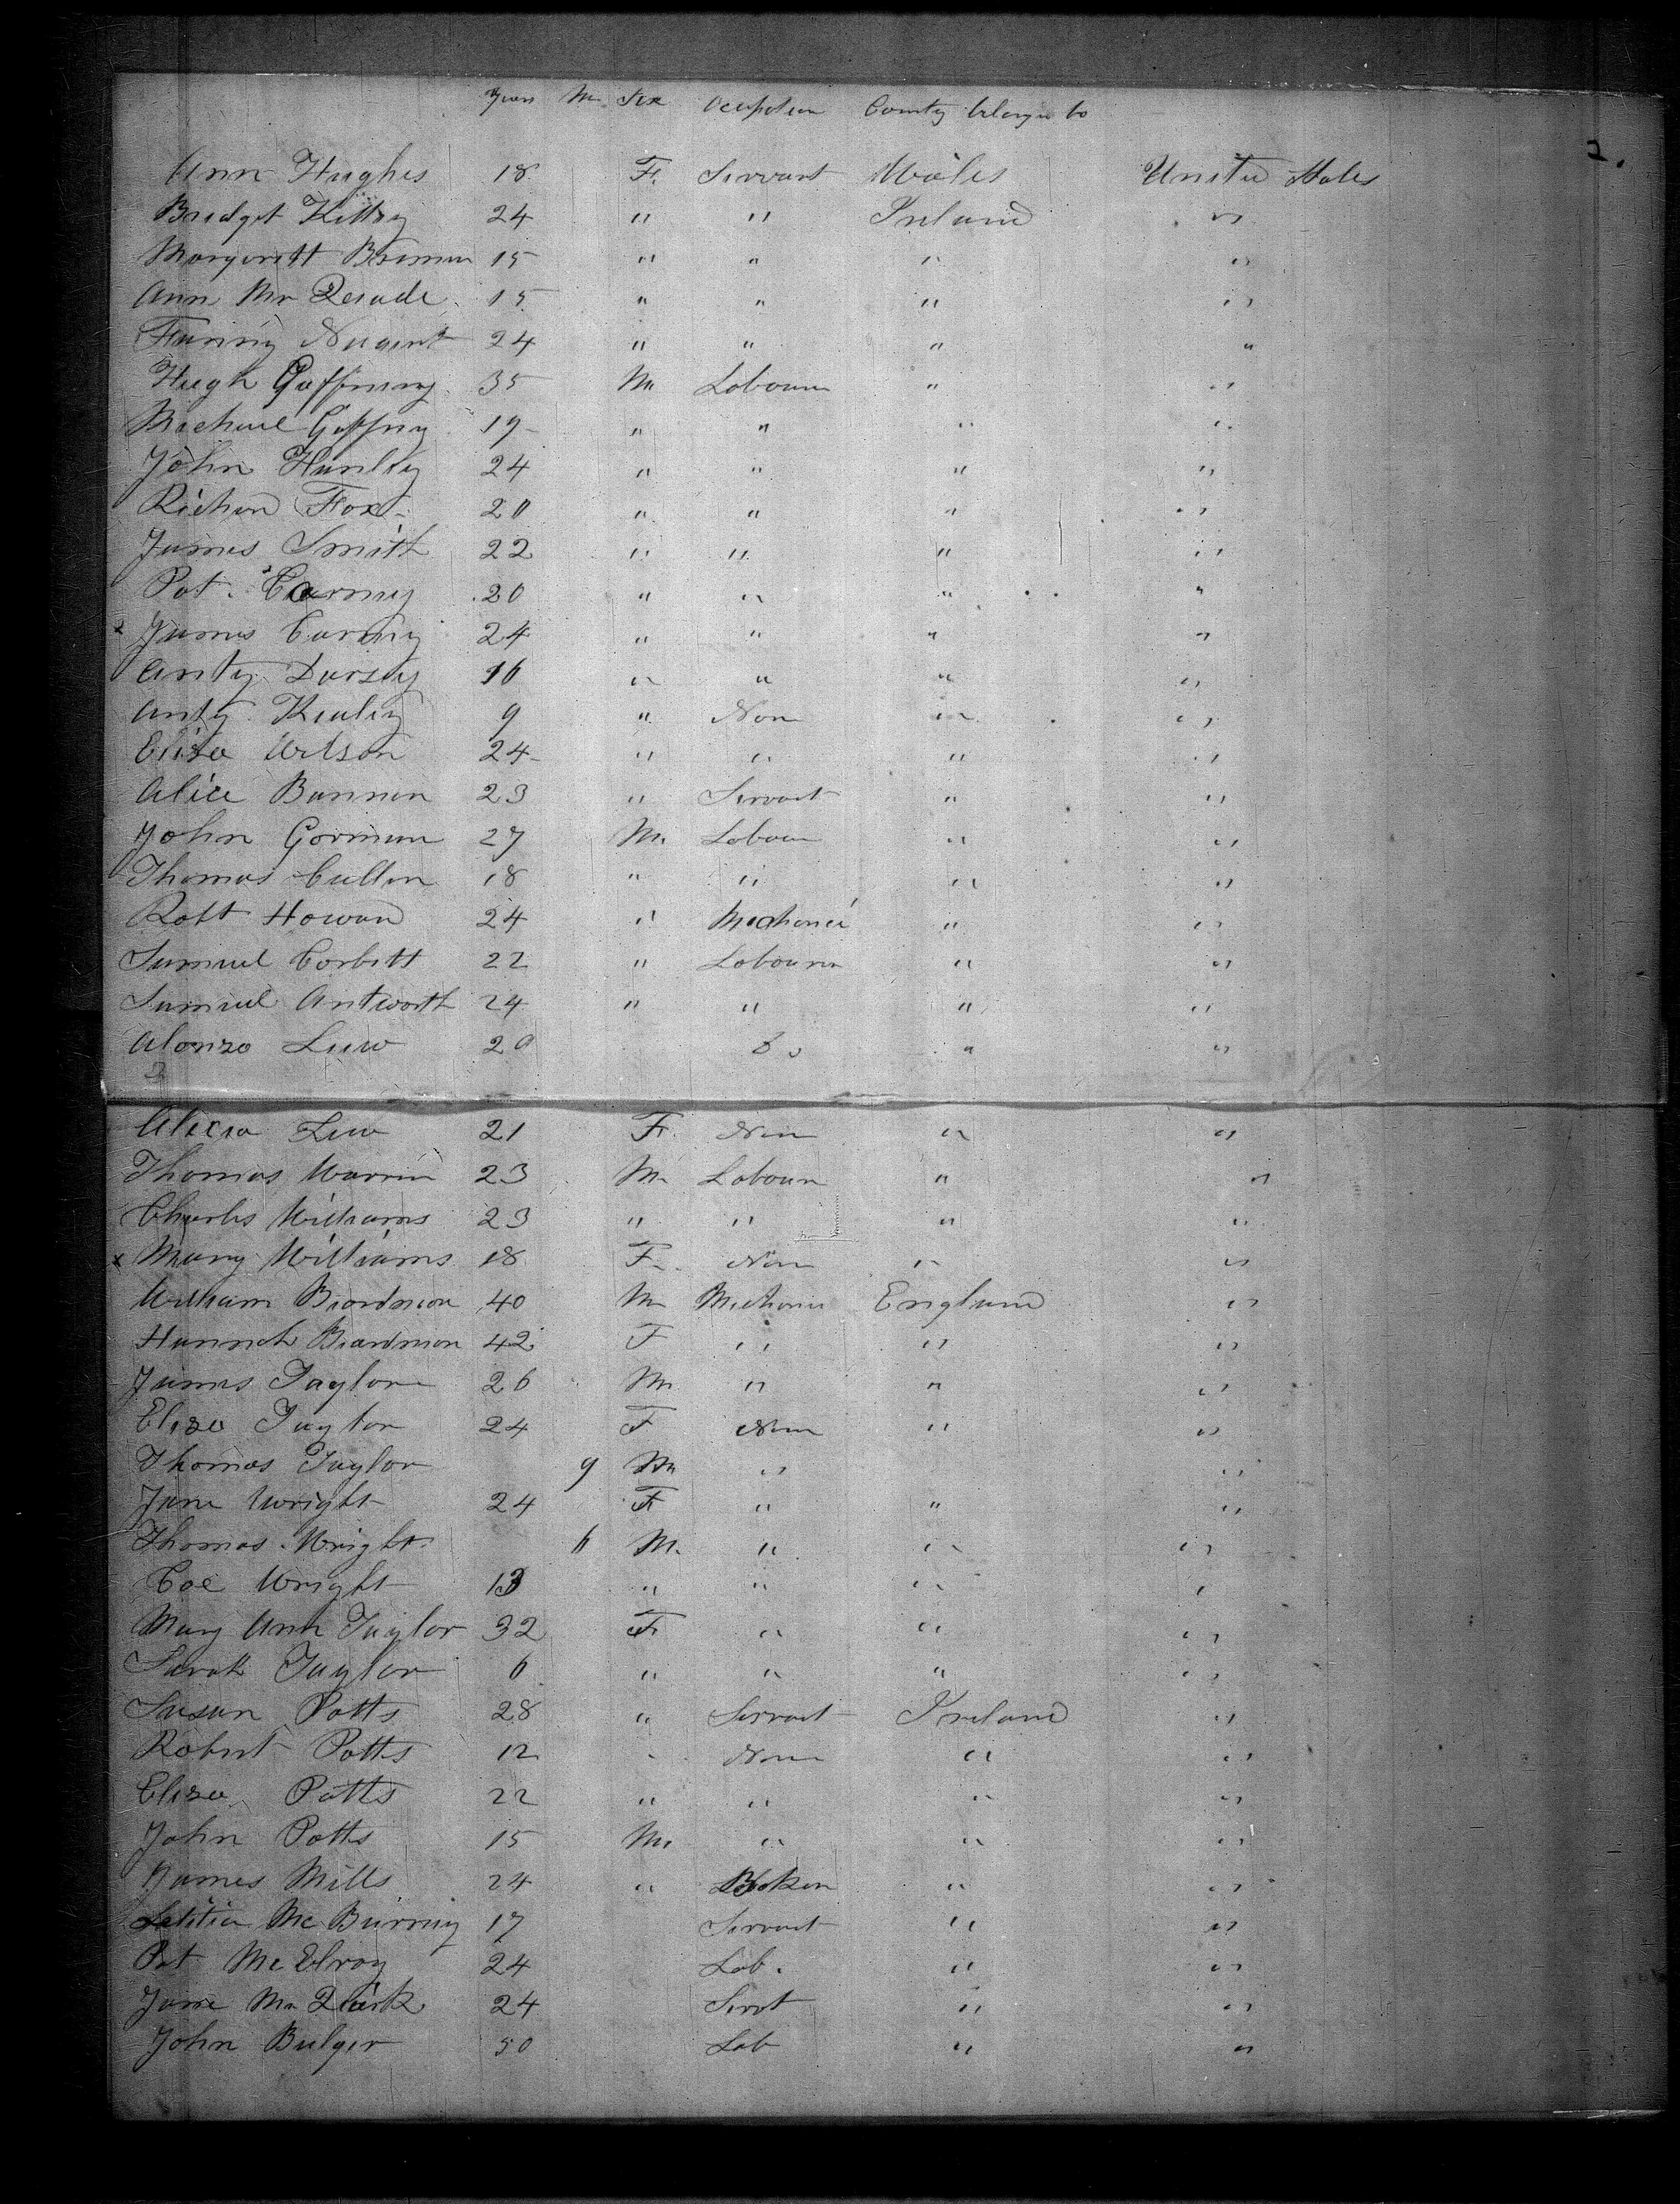 Years M. Sex Ocupation County belongin to
2.
Ann Hughes 18 F. Servant Wales United States
Bridget 24 " " Ireland "
Margerett 15 " " " "
Ann Mc 15 " " " "
Fanny Nugent 24 " " " "
Hugh Gaffney 35 M Labourer " "
Michael Gaffney 19 " " " "
John Hanley 24 " " " "
Richard Fox 20 " " " "
James Smith 22 " " " "
Pat. Carney 20 " " " "
x James Carney 24 " " " "
Anty Darsey 16 " " " "
Anty. Kealey 9 " None " "
Eliza Wilson 24 " " " "
Alice Bannon 23 " Servant " "
John Gorman 27 M. Labour " "
Thomas Cullen 18 " " " "
Robt Howard 24 " Mechanic " "
Samuel Corbett 22 " Labourer " "
Samuel Antworth 24 " " " "
Alonzo 20 Do " "
2
Alicia 21 F. None " "
Thomas Warren 23 M. Labour " "
Charles Williams 23 " " " "
x Mary Williams 18 F. None " "
William Boardman 40 M Mechanic England "
Hannah Boardman 42 F " " "
James Taylor 26 M " " "
Eliza Taylor 24 F None " "
Thomas Taylor 9 M " "
Jane Wright 24 F " " "
Thomas Wright M. " " "
Coe Wright 13 " " " "
Mary Ann Taylor 32 F " " "
Sarah Taylor 6 " " " "
Susan Potts 28 " Servant Ireland "
Robert Potts 12 " None " "
Eliza Potts 22 " " " "
John Potts 15 M. " " "
James Mills 24 " " "
Letitia Mc Burney 17 Servant " "
Pat McElroy 24 Lab. " "
Jane Mc Quirk 24 Servt " "
John Bulger 50 Lab " "